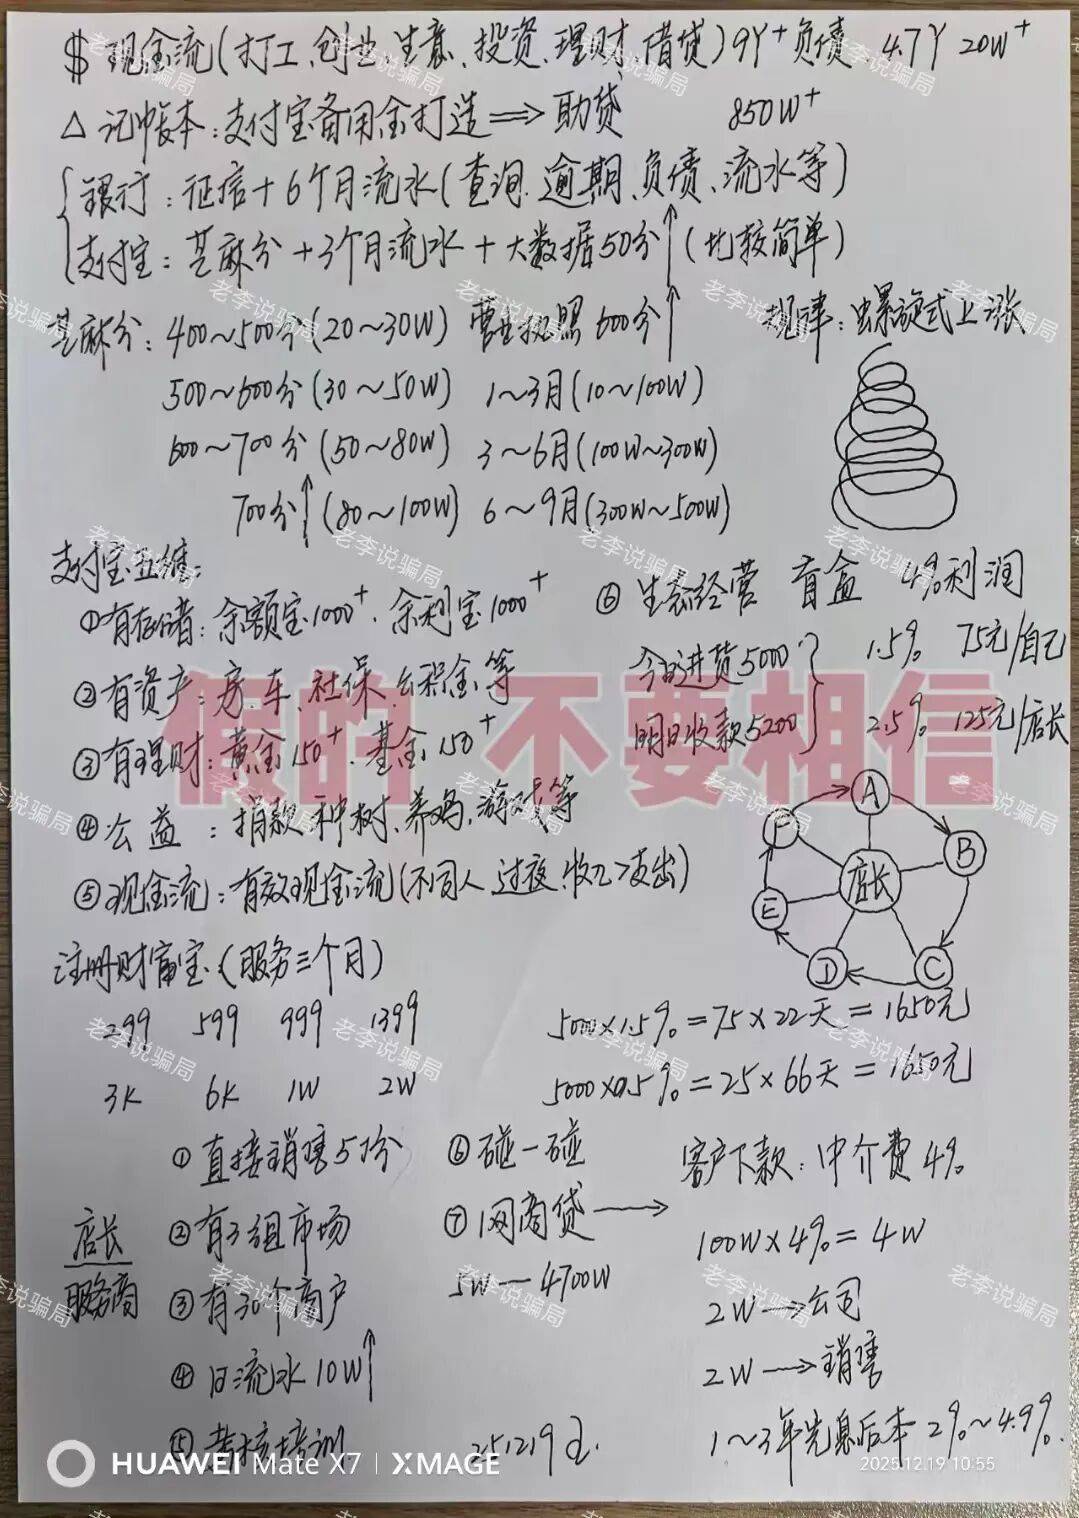 $ 现金流(打工、创业、生意、投资、理财、借贷) 9Y+负债 4.7Y 20W+
△ 记帐本:支付宝备用金打造⇒助贷 850W+
银行:征信+6个月流水(查询、逾期、负债、流水等)
支付宝:芝麻分+3个月流水+大数据50分↑(比较简单)
芝麻分:400~500分(20~30W) 营业执照600分↑ 规律:螺旋式上涨
500~600分(30~50W) 1~3月(10~100W)
600~700分(50~80W) 3~6月(100W~300W)
700分↑(80~100W) 6~9月(300W~500W)
支付宝五维:
①有存储:余额宝1000+、余利宝1000+
②有资产:房、车、社保、公积金等
③有理财:黄金150+、基金150+
④公益:捐款、种树、养鸡、游戏等
⑤现金流:有效现金流(不同人、过夜、收入>支出)
⑥生态经营 盲盒 4%利润
今日进货5000 1.5% 75元/自己
明日收款5200 2.5% 125元/店长
A
B
C
D
E
F
店长
注册财富宝(服务三个月)
299 599 999 1399
3K 6K 1W 2W
5000×1.5%=75×22天=1650元
5000×0.5%=25×66天=1650元
店长
服务商
①直接销售5份
②有3组市场
③有30个商户
④日流水10W↑
⑤考核培训
⑥碰一碰
⑦网商贷→
5W—4700W
客户下款:中介费4%
100W×4%=4W
2W→公司
2W→销售
1~3年先息后本2%~4.9%
251219
假的 不要相信
老李说骗局
HUAWEI Mate X7 | XMAGE
2025.12.19 10:55